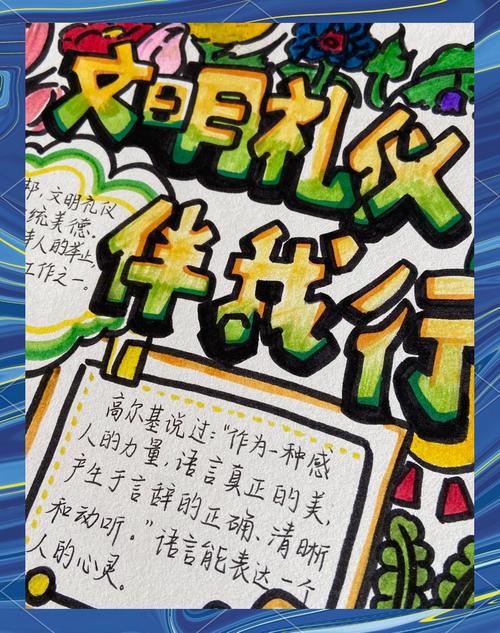 文明礼仪
伴我行
邦,文明礼仪
统美德.
人的举止,
工作之一。
高尔基说过:"作为一种感
人的力量,语言真正的美,
产生于言辞的正确、清晰
和动听。"语言能表达一个
人的心灵。